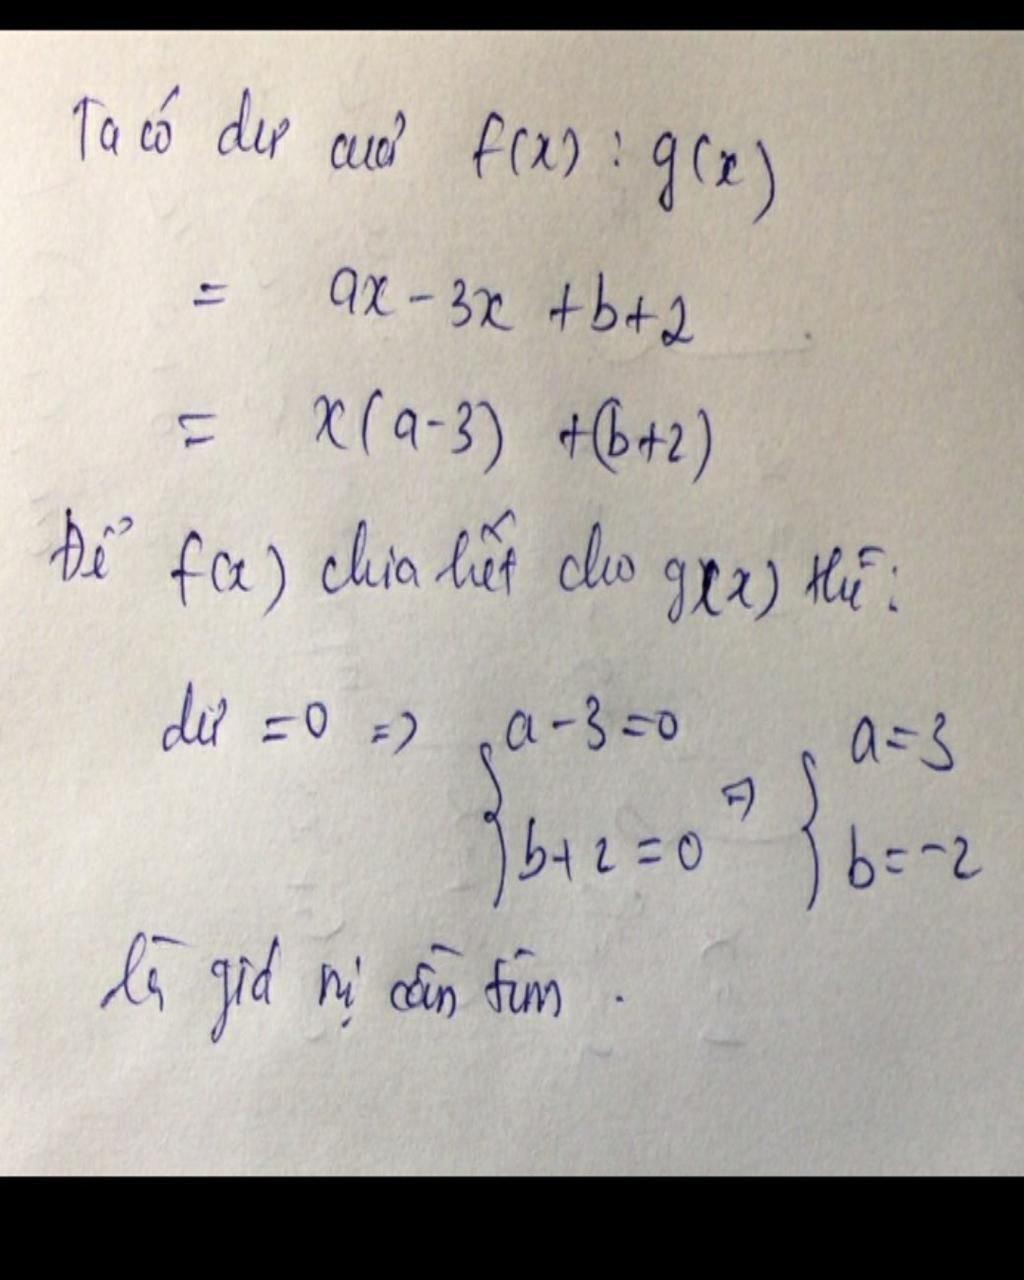 Ta có dư của f(x) : g(x)
= ax - 3x + b + 2
= x(a-3) + (b+2)
Để f(x) chia hết cho g(x) thì:
dư = 0 => { a - 3 = 0 => { a = 3
b + 2 = 0 b = -2
là giá trị cần tìm.